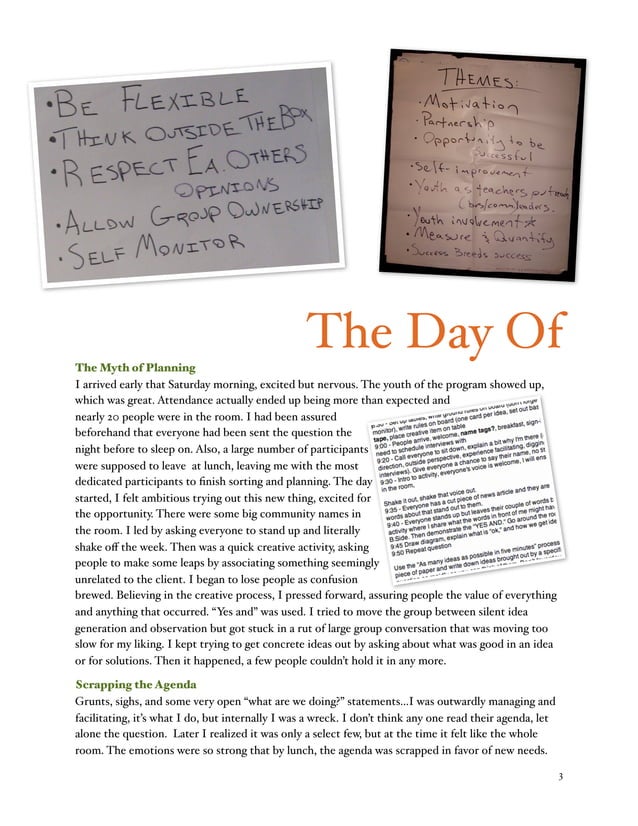 • BE FLEXIBLE
• THINK OUTSIDE THE BOX
• RESPECT EA. OTHERS
OPINIONS
• ALLOW GROUP OWNERSHIP
• SELF MONITOR
THEMES:
• Motivation
• Partnership
• Opportunity to be
successful
• Self-improvement
• Youth as teachers, outreach
leaders.
• Youth involvement ☆
• Measure & Quantify
• Success Breeds success
The Day Of
The Myth of Planning
I arrived early that Saturday morning, excited but nervous. The youth of the program showed up,
which was great. Attendance actually ended up being more than expected and
nearly 20 people were in the room. I had been assured
beforehand that everyone had been sent the question the
night before to sleep on. Also, a large number of participants
were supposed to leave  at lunch, leaving me with the most
dedicated participants to finish sorting and planning. The day
started, I felt ambitious trying out this new thing, excited for
the opportunity. There were some big community names in
the room. I led by asking everyone to stand up and literally
shake off the week. Then was a quick creative activity, asking
people to make some leaps by associating something seemingly
unrelated to the client. I began to lose people as confusion
brewed. Believing in the creative process, I pressed forward, assuring people the value of everything
and anything that occurred. “Yes and” was used. I tried to move the group between silent idea
generation and observation but got stuck in a rut of large group conversation that was moving too
slow for my liking. I kept trying to get concrete ideas out by asking about what was good in an idea
or for solutions. Then it happened, a few people couldn’t hold it in any more.
monitor), write rules on board (one card per idea, set out bat
tape, place creative item on table
9:00 - People arrive, welcome, name tags?, breakfast, sign-
need to schedule interviews with
9:20 - Call everyone to sit down, explain a bit why I'm there (
direction, outside perspective, experience facilitating, diggin
interviews). Give everyone a chance to say their name, no tit
9:30 - Intro to activity, everyone's voice is welcome, I will ens
in the room.
Shake it out, shake that voice out.
9:35 - Everyone has a cut piece of news article and they are
words about that stand out to them.
9:40 - Everyone stands up but leaves their couple of words b
activity where I share what the words in front of me might hav
B.Side. Then demonstrate the "YES AND." Go around the roo
9:45 Draw diagram, explain what is "ok," and how we get ide
9:50 Repeat question
Use the "As many ideas as possible in five minutes" process
piece of paper and write down ideas brought out by a specifi
Scrapping the Agenda
Grunts, sighs, and some very open “what are we doing?” statements...I was outwardly managing and
facilitating, it’s what I do, but internally I was a wreck. I don’t think any one read their agenda, let
alone the question.  Later I realized it was only a select few, but at the time it felt like the whole
room. The emotions were so strong that by lunch, the agenda was scrapped in favor of new needs.
3